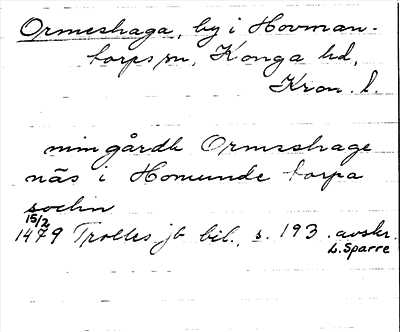 Ormeshaga, by i Hovman-
torps sn, Konga hd,
Kron. l.
min gårdh Ormshage
näs i Homunde torpa
sochn
15/2 1479 Trolles jb bil., s. 193. avskr.
L. Sparre